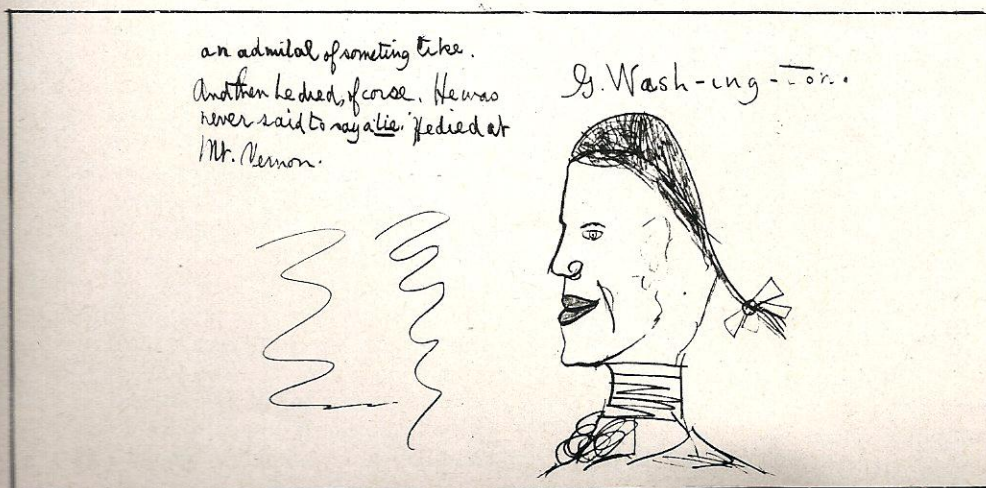 an admilal of someting like.
And then he died, of corse. He was
never said to say a lie. He died at
Mt. Vernon.
G. Wash-ing-ton.